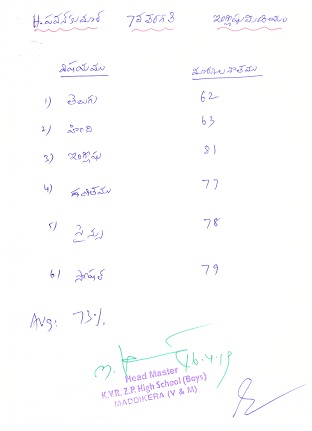 H. పవన్ కుమార్ 7వ తరగతి ఇంగ్లీషు మీడియం
విషయము మార్కుల శాతము
1) తెలుగు 62
2) హింది 63
3) ఇంగ్లీషు 81
4) గణితము 77
5) సైన్సు 78
6) సోషల్ 79
Avg: 73%
16.4.19
Head Master
K.V.R. Z.P. High School (Boys)
MADDIKERA (V & M)